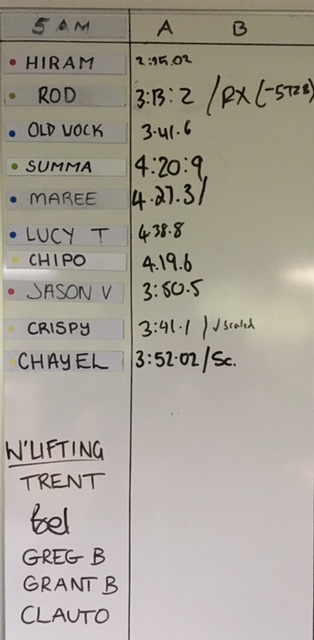 5 AM A B
HIRAM 2:15.02
ROD 3:13:2 / RX (-5TZB)
OLD JOCK 3.41.6
SUMMA 4:20:9
MAREE 4.27.3/
LUCY T 4 38.8
CHIPO 4.19.6
JASON V 3:50.5
CRISPY 3:41.1 / √ scaled
CHAYEL 3:52.02/Sc.
W'LIFTING
TRENT
Bel
GREG B
GRANT B
CLAUTO